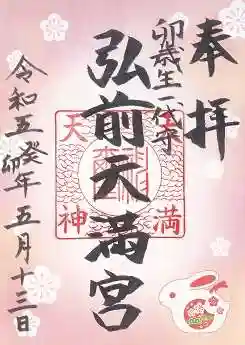 奉拝
卯歳生一代守
弘前天満宮
天満
天神
令和五癸卯年五月十三日